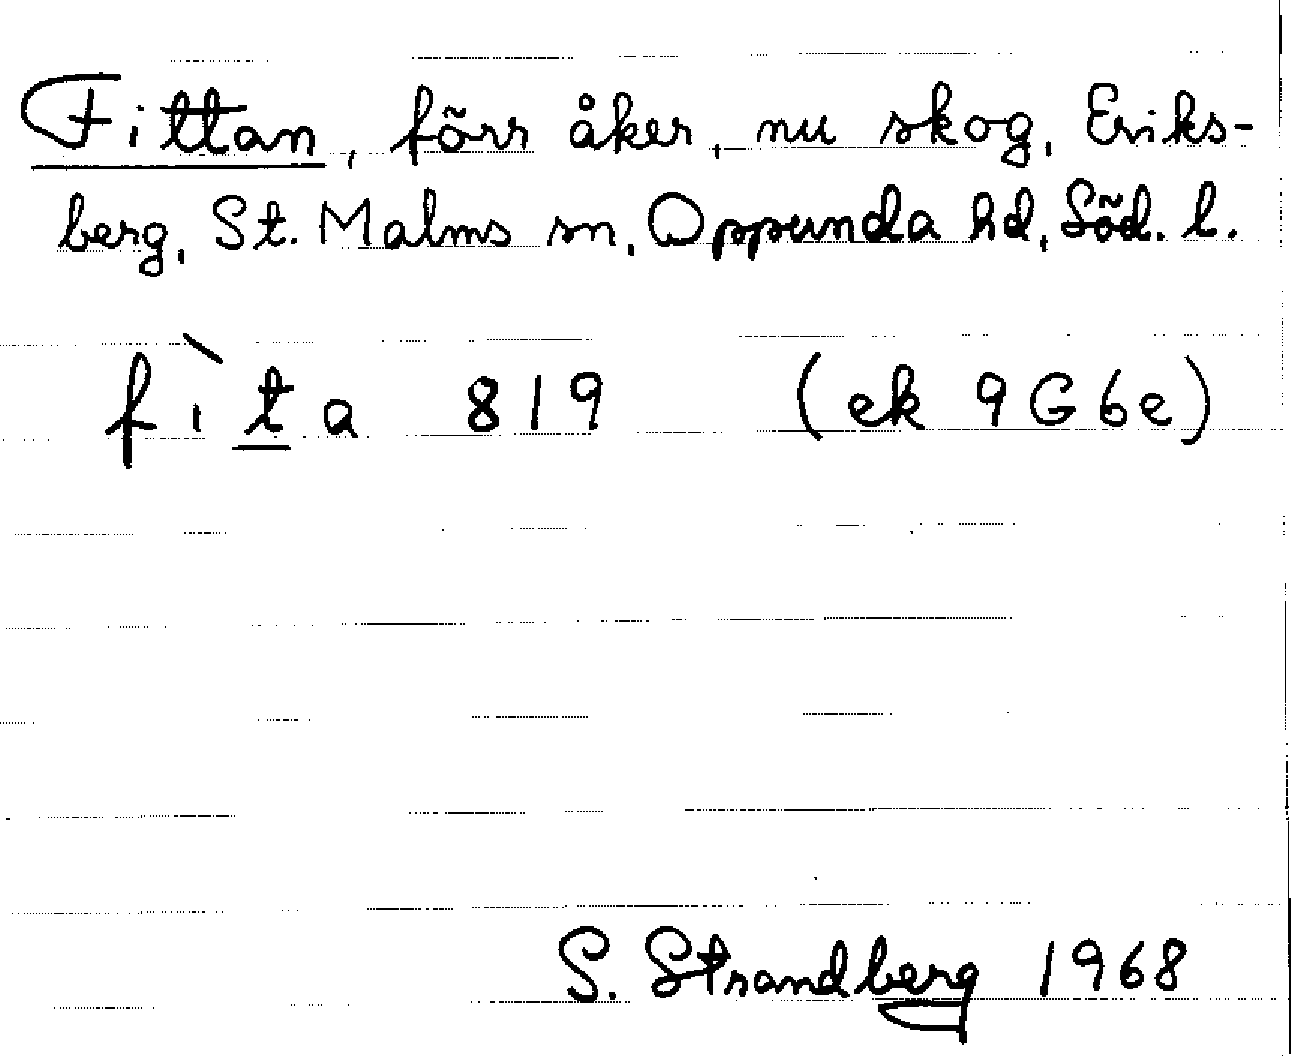 Fittan, förr åker, nu skog, Eriks-
berg, St. Malms sn, Oppunda hd, Söd. l.
fi`ta 819 (ek 9G6e)
S. Strandberg 1968